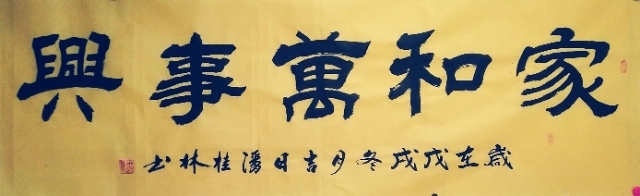 家和萬事興
歲在戊戌冬月吉日潘桂林书